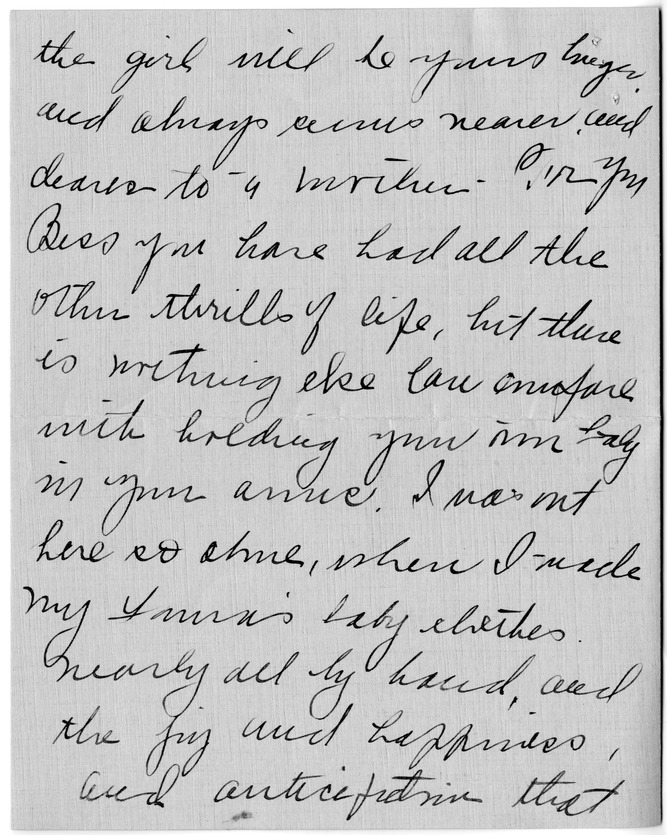 the girl will be yours longer,
and always seems nearer, and
dearer to a mother - For you
Bess you have had all the
other thrills of life, but there
is nothing else can compare
with holding your own baby
in your arms. I was out
here so alone, when I made
my Louna's baby clothes.
nearly all by hand, and
the joy and happiness,
and anticipation that